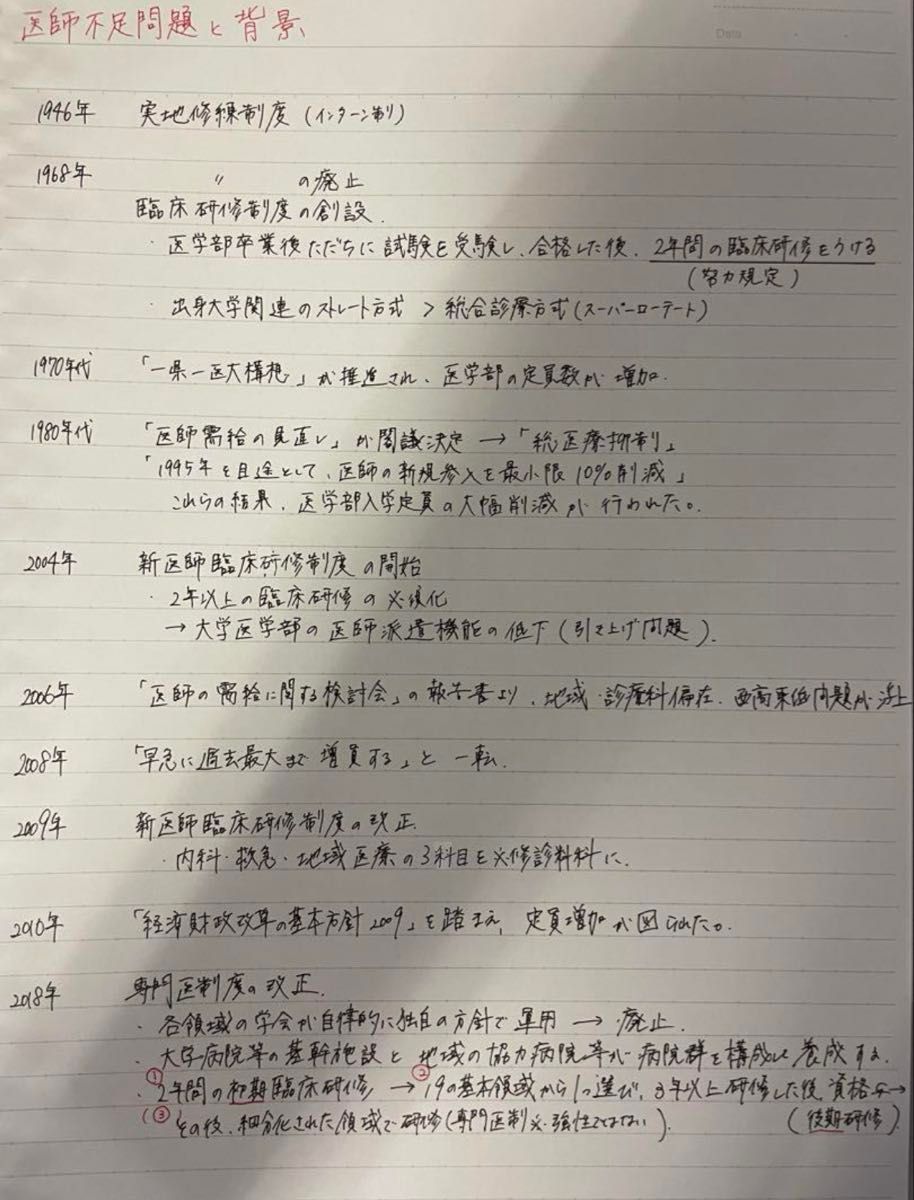 医師不足問題と背景
Data
1946年 実地修練制度 (インターン制)
1968年 〃 の廃止
臨床研修制度の創設.
・医学部卒業後ただちに試験を受験し、合格した後、2年間の臨床研修をうける
(努力規定)
・出身大学関連のストレート方式 > 統合診療方式(スーパーローテート)
1970年代 「一県一医大構想」が推進され、医学部の定員数が増加.
1980年代 「医師需給の見直し」が閣議決定 → 「総医療抑制」
「1995年を目途として、医師の新規参入を最小限10%削減」
これらの結果、医学部入学定員の大幅削減が行われた。
2004年 新医師臨床研修制度の開始
・2年以上の臨床研修の必須化
→ 大学医学部の医師派遣機能の低下(引き上げ問題).
2006年 「医師の需給に関する検討会」の報告書より、地域・診療科偏在、西高東低問題が浮上
2008年 「早急に過去最大まで増員する」と一転.
2009年 新医師臨床研修制度の改正.
・内科・救急・地域医療の3科目を必修診料科に.
2010年 「経済財政改革の基本方針2009」を踏まえ、定員増加が図られた。
2018年 専門医制度の改正.
・各領域の学会が自律的に独自の方針で運用 → 廃止.
・大学病院等の基幹施設と地域の協力病院等が病院群を構成して養成する.
・①2年間の初期臨床研修 → ②19の基本領域から1つ選び、3年以上研修した後、資格 →
(③その後、細分化された領域で研修(専門医制 必 強性ではない). (後期研修)